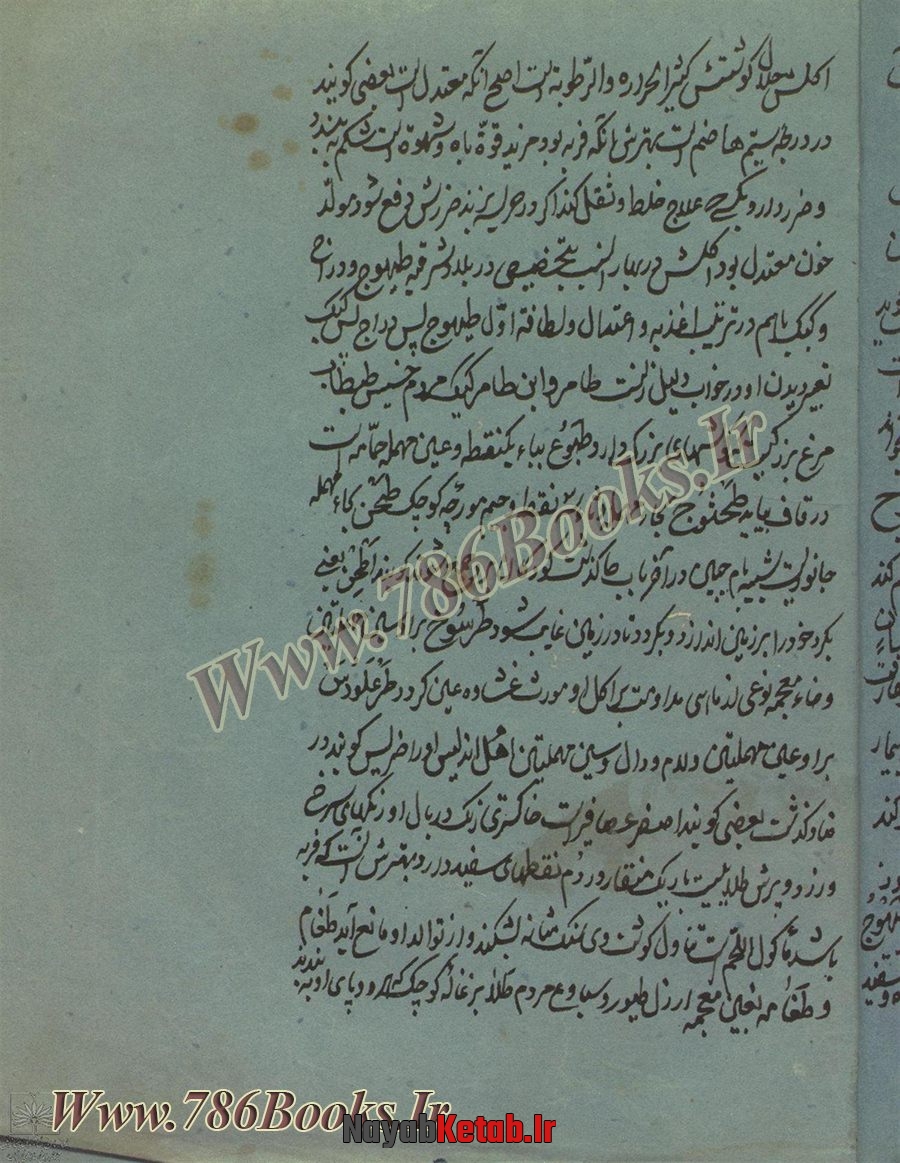 اکلش حلال کوشتش کثیر الحراره والرطوبة است اصح آنکه معتدل است بعضی کویند
در درجه سیم هاضم است بهترش آنکه فربه بود مزید قوة باه و شهوة است شکم به بندد
و ضرر دارد علاج خلط و ثقل کند اکر در هریسه پزند ضررش دفع شود مولد
خون معتدل بود اکلش در بهار انسب بتخصیص در بلاد شرقیه طیهوج و دراج
و کبک باهم در ترتیب اغذیه و اعتدال و لطافة اول طیهوج پس دراج پس کبک
تعبیر دیدن او در خواب دلیل زنست طامر و ابن طامر کیک مردم خسیس طبطاب
مرغ بزرکیست کوشهای بزرک دارد طبوع بباء یکنقطه و عین مهمله حلمه است
در قاف بیاید طحثوج نقطه و جیم مورچه کوچک طحن بحاء مهمله
جانوریست شبیه بام حبین در آخر باب حا کذشت کویند اطحن یعنی
بکرد خود را بر زمین اندازد و بکردد تا در زمین غایب شود طرسوح براء و سین مهملتین
و خاء معجمه نوعی از ماهی مداومت بر اکل او مورث غشاوه عین کردد طرغلودس
براء و عین مهملتین و لام و دال و سین مهملتین اهل اندلس او را ضریس کویند در
ضاد کذشت بعضی کویند اصغر عصافیر است خاکستری رنک در بال او رنکهای سرخ
و زرد و پرش طلاییست باریک منقار در دم نقطهای سفید دارد بهترش آنست که فربه
باشد مأکول اللحم است تناول کوشت وی سنک مثانه بشکند و از تولد او مانع آید طغام
و طغامه بغین معجمه ارزل طیور و سباع و مردم طلا بزغاله کوچک که دو پای او به بندند
Www.786Books.Ir
Www.786Books.Ir
NayabKetab.Ir